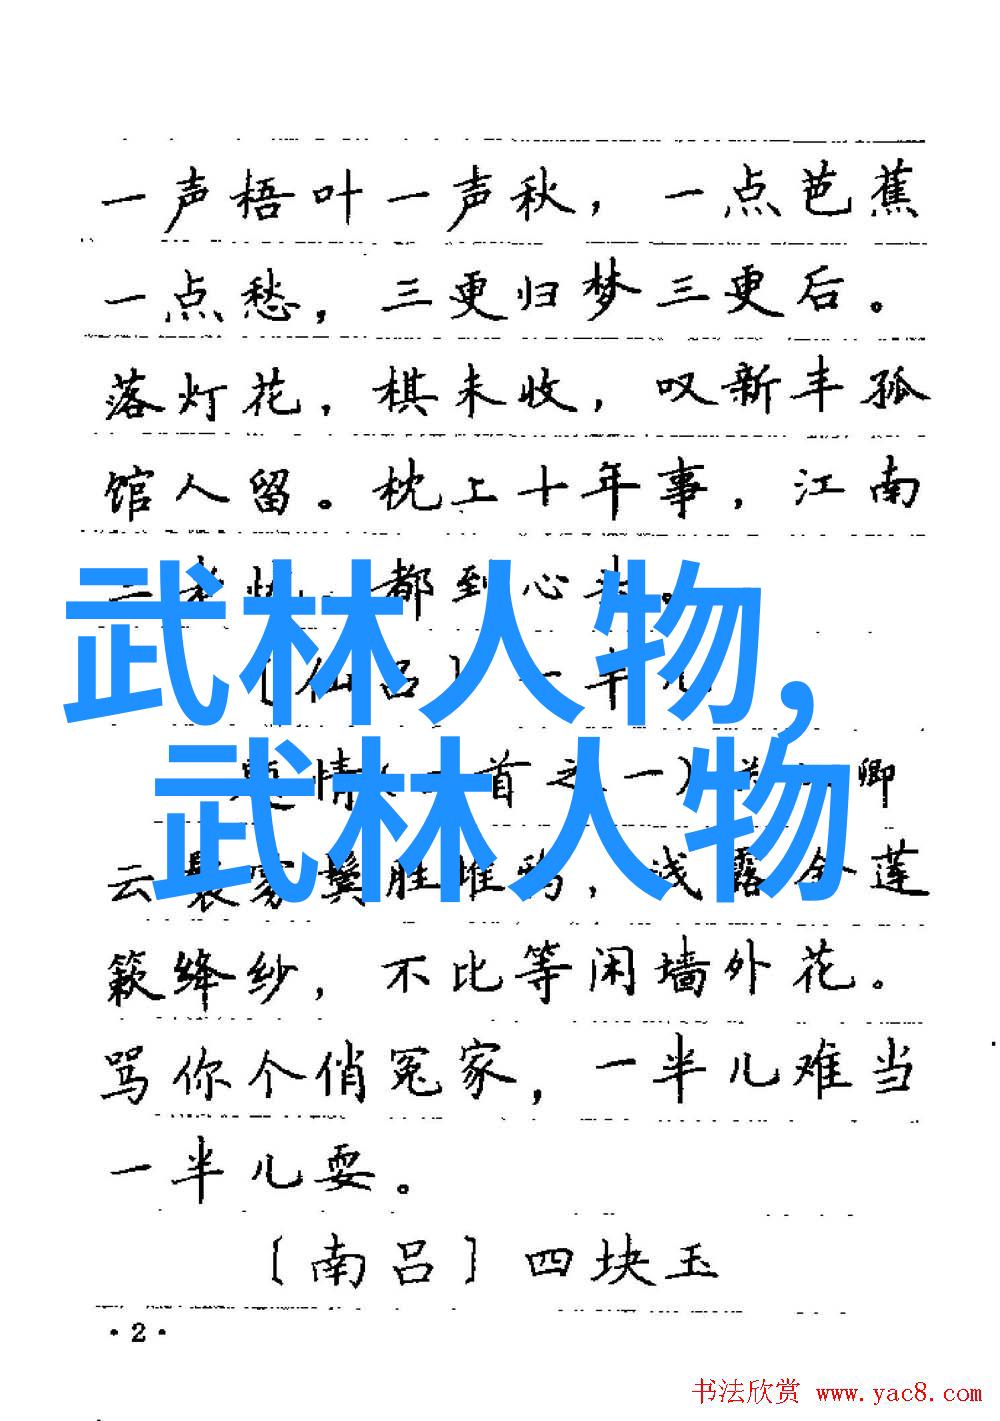 一声梧叶一声秋，一点芭蕉
一点愁，三更归梦三更后。
落灯花，棋未收，叹新丰孤
馆人留。枕上十年事，江南
二老忧，都到心头。
〔仙吕〕一半儿
武林人物，
情（ 首之一）卿
武林人物
云 雾鬓胜堆鸦，浅露金莲
簌绛纱，不比等闲墙外花。
骂你个俏冤家，一半儿难当
一半儿耍。
〔南吕〕四块玉
·2·
书法欣赏 www.yac8.com